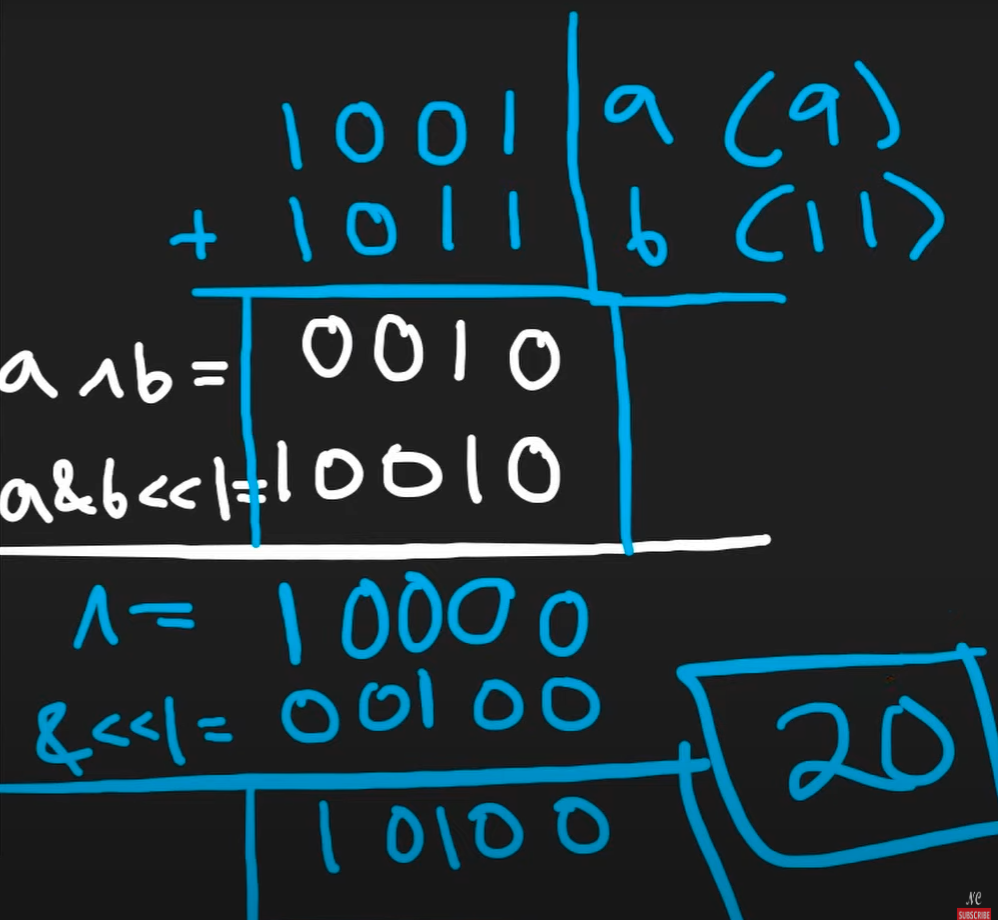 1001 a (9)
+ 1011 b (11)
a ^ b = 0010
a&b<<1= 10010
^ = 10000
&<<1= 00100
20
10100
NC
SUBSCRIBE